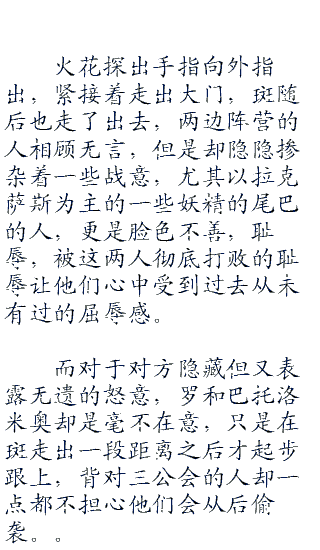 火花探出手指向外指
出，紧接着走出大门，斑随
后也走了出去，两边阵营的
人相顾无言，但是却隐隐掺
杂着一些战意，尤其以拉克
萨斯为主的一些妖精的尾巴
的人，更是脸色不善，耻
辱，被这两人彻底打败的耻
辱让他们心中受到过去从未
有过的屈辱感。
而对于对方隐藏但又表
露无遗的怒意，罗和巴托洛
米奥却是毫不在意，只是在
斑走出一段距离之后才起步
跟上，背对三公会的人却一
点都不担心他们会从后偷
袭。。